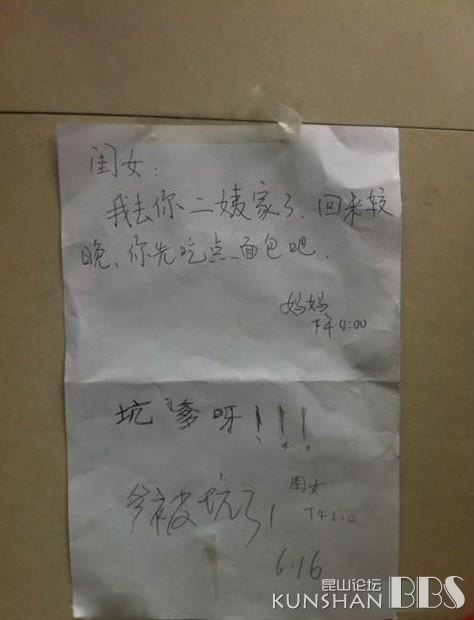 闺女：
我去你二姨家了，回来较
晚、你先吃点面包吧．
妈妈
下午4:00
坑爹呀！！！
闺女
下午6:12
爷被坑了！
6:16
昆山论坛
KUNSHAN BBS